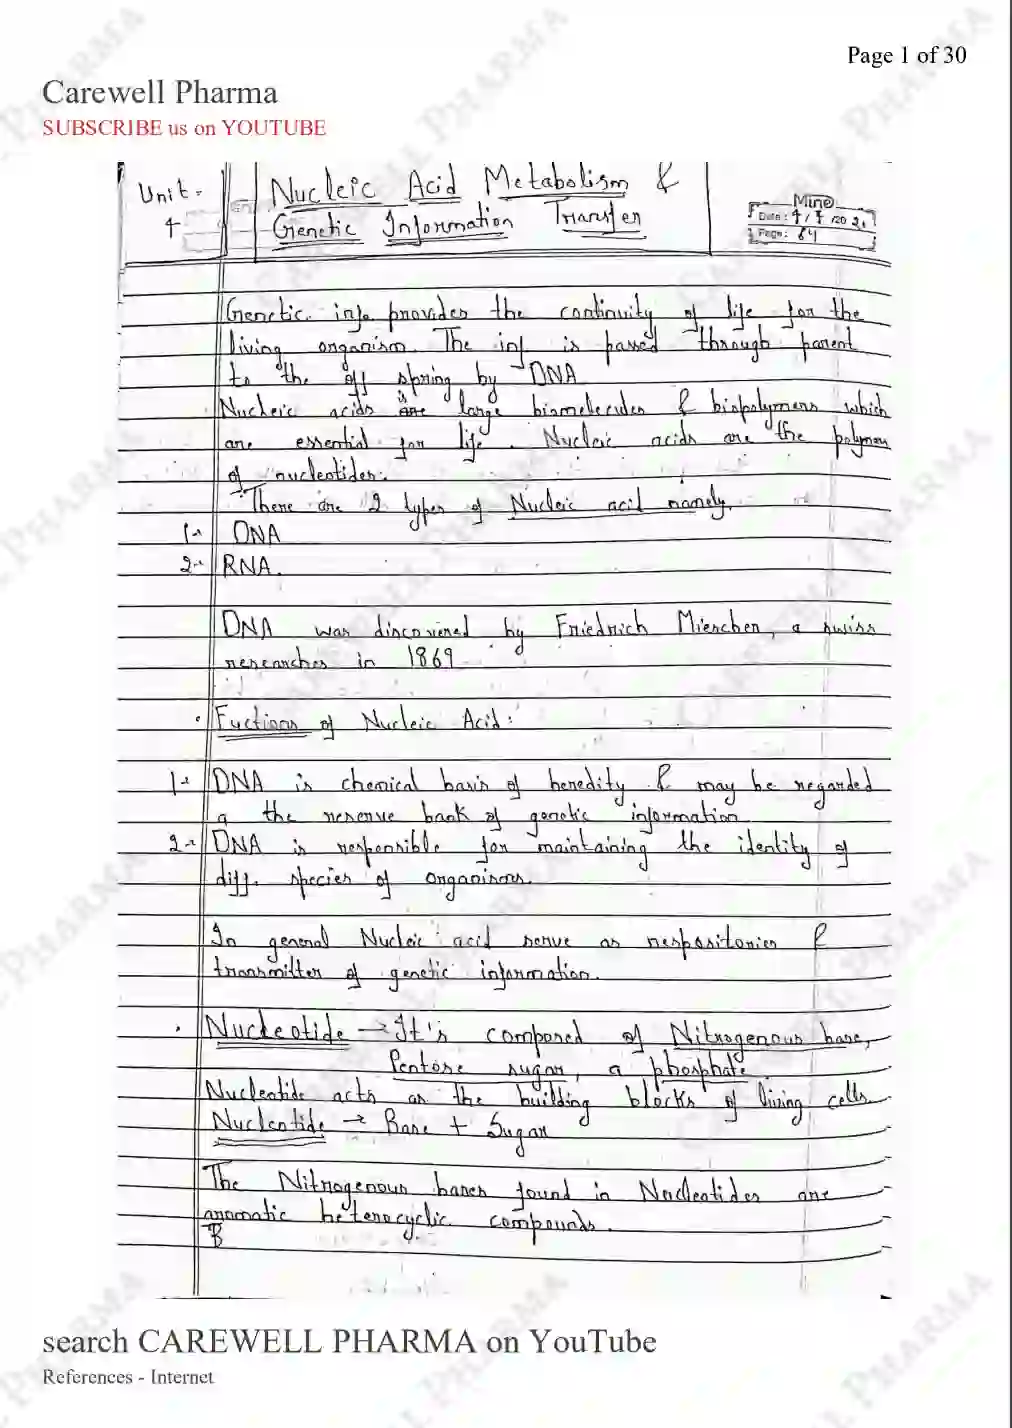 Page 1 of 30
Carewell Pharma
SUBSCRIBE us on YOUTUBE
Unit - 4
Nucleic Acid Metabolism &
Genetic Information Transfer
Mine
Date: 9/7/20
Page: 64
Genetic info provides the continuity of life for the
living organism. The inf is passed through parent
to the off spring by DNA
Nucleic acids is large biomolecules & biopolymers which
are essential for life. Nucleic acids are the polymer
of nucleotides.
There are 2 types of Nucleic acid namely.
1- DNA
2- RNA.
DNA was discovered by Friedrich Mierchen, a swiss
researches in 1869
Fuctions of Nucleic Acid:
1- DNA is chemical basis of heredity & may be regarded
a the reserve bank of genetic information
2- DNA is responsible for maintaining the identity of
diff. species of organisms.
In general Nucleic acid serve as respositories &
transmitter of genetic information.
Nucleotide → It's composed of Nitrogenous base,
Pentose sugar, a phosphate.
Nucleotide acts as the building blocks of living cells
Nucleotide → Base + Sugar
The Nitrogenous bases found in Nucleotides are
aromatic heterocyclic compounds.
B
search CAREWELL PHARMA on YouTube
References - Internet
CAREWELL PHARMA